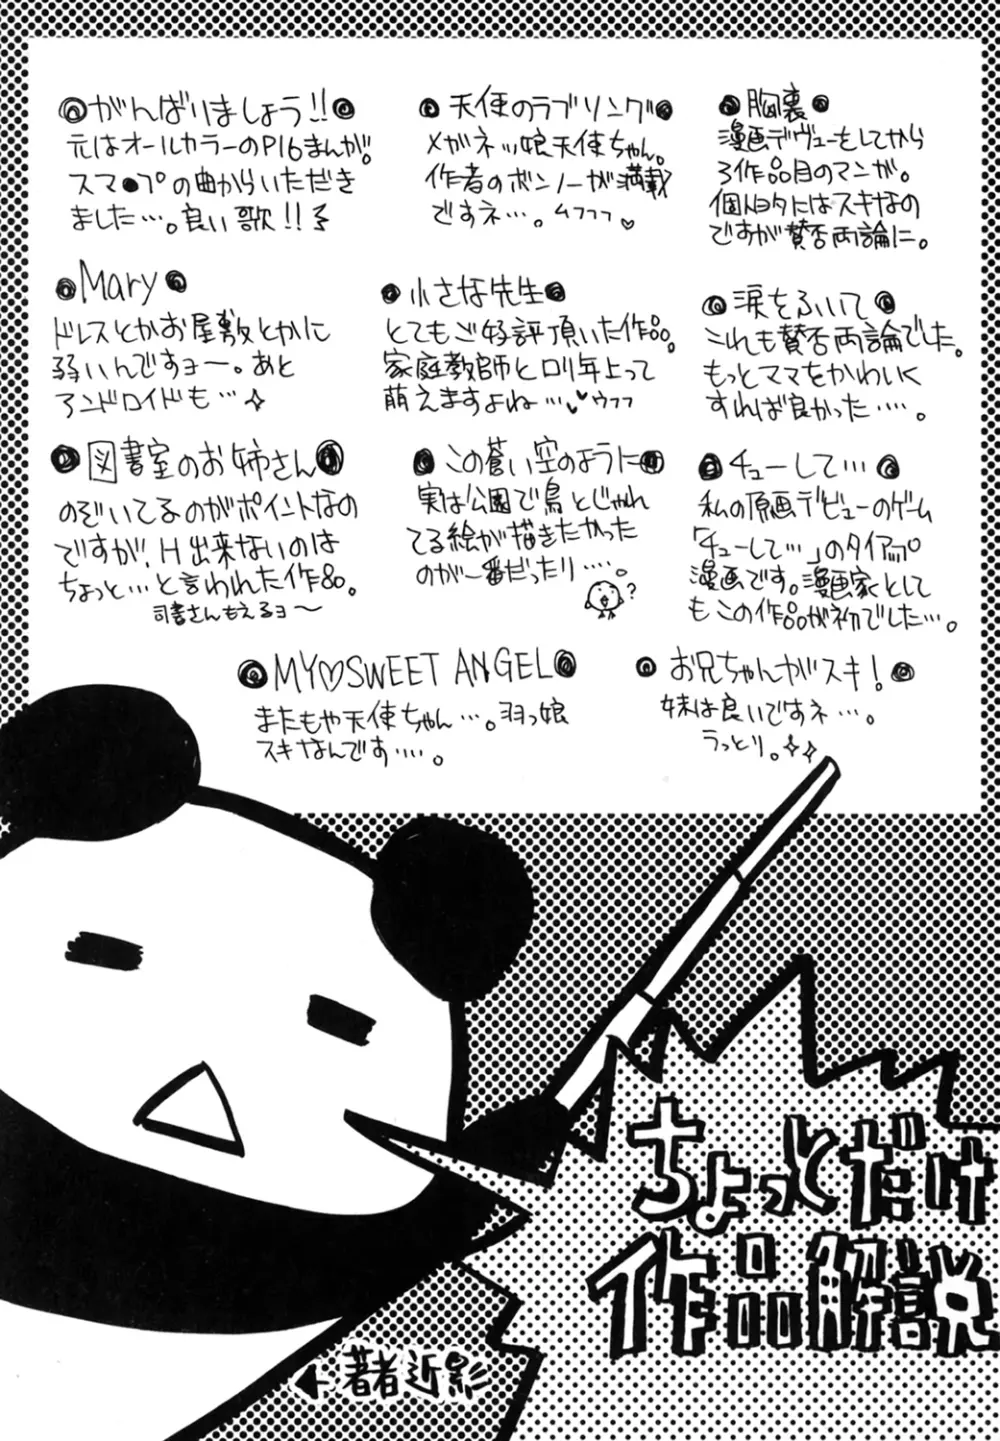 胸裏
漫画デヴューをしてから
3作品目のマンガ。
個人的にはスキなの
ですが賛否両論に。
天使のラブソング
メガネッ娘天使ちゃん。
作者のボンノーが満載
ですネ…。ムフフフ♡
がんばりましょう!!
元はオールカラーのP16まんが。
スマ●プの曲からいただき
ました…。良い歌!!
涙をふいて
これも賛否両論でした。
もっとママをかわいく
すれば良かった……。
小さな先生
とてもご好評頂いた作品。
家庭教師とロリ年上って
萌えますよね…♥ウフフ
Mary
ドレスとかお屋敷とかに
弱いんですョ〜。あと
アンドロイドも…
チューして…
私の原画デビューのゲーム
「チューして…」のタイアップ
漫画です。漫画家として
もこの作品が初でした…。
この蒼い空のように
実は公園で鳥とじゃれ
てる絵が描きたかった
のが一番だったり……。
?
図書室のお姉さん
のぞいてるのがポイントなの
ですが、H出来ないのは
ちょっと…と言われた作品。
司書さんもえるョ〜
お兄ちゃんがスキ!
妹は良いですネ…。
うっとり。
MY♡SWEET ANGEL
またもや天使ちゃん…。羽っ娘
スキなんです……。
ちょっとだけ
作品解説
著者近影